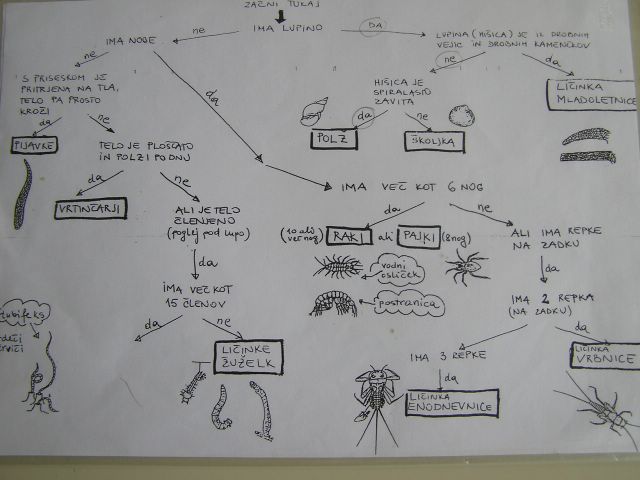 ZAČNI TUKAJ
IMA LUPINO
ne
DA
IMA NOGE
ne
da
LUPINA (HIŠICA) JE IZ DROBNIH
VEJIC IN DROBNIH KAMENČKOV
ne
da
LIČINKA
MLADOLETNICE
HIŠICA JE
SPIRALASTO
ZAVITA
da
ne
POLŽ
ŠKOLJKA
S PRISESKOM JE
PRITRJENA NA TLA,
TELO PA PROSTO
KROŽI
da
ne
PIJAVKE
TELO JE PLOŠČATO
IN POLZI PO DNU
da
ne
VRTINČARJI
ALI JE TELO
ČLENJENO
(poglej pod lupo)
da
IMA VEČ KOT
15 ČLENOV
da
ne
LIČINKE
ŽUŽELK
tubifeks
rdeči
črviči
IMA VEČ KOT 6 NOG
da
ne
(10 ali
več nog)
RAKI
ali
PAJKI
(8 nog)
vodni
osliček
postranica
ALI IMA REPKE
NA ZADKU
da
IMA 2 REPKA
(NA ZADKU)
da
LIČINKA
VRBNICE
IMA 3 REPKE
da
LIČINKA
ENODNEVNICE